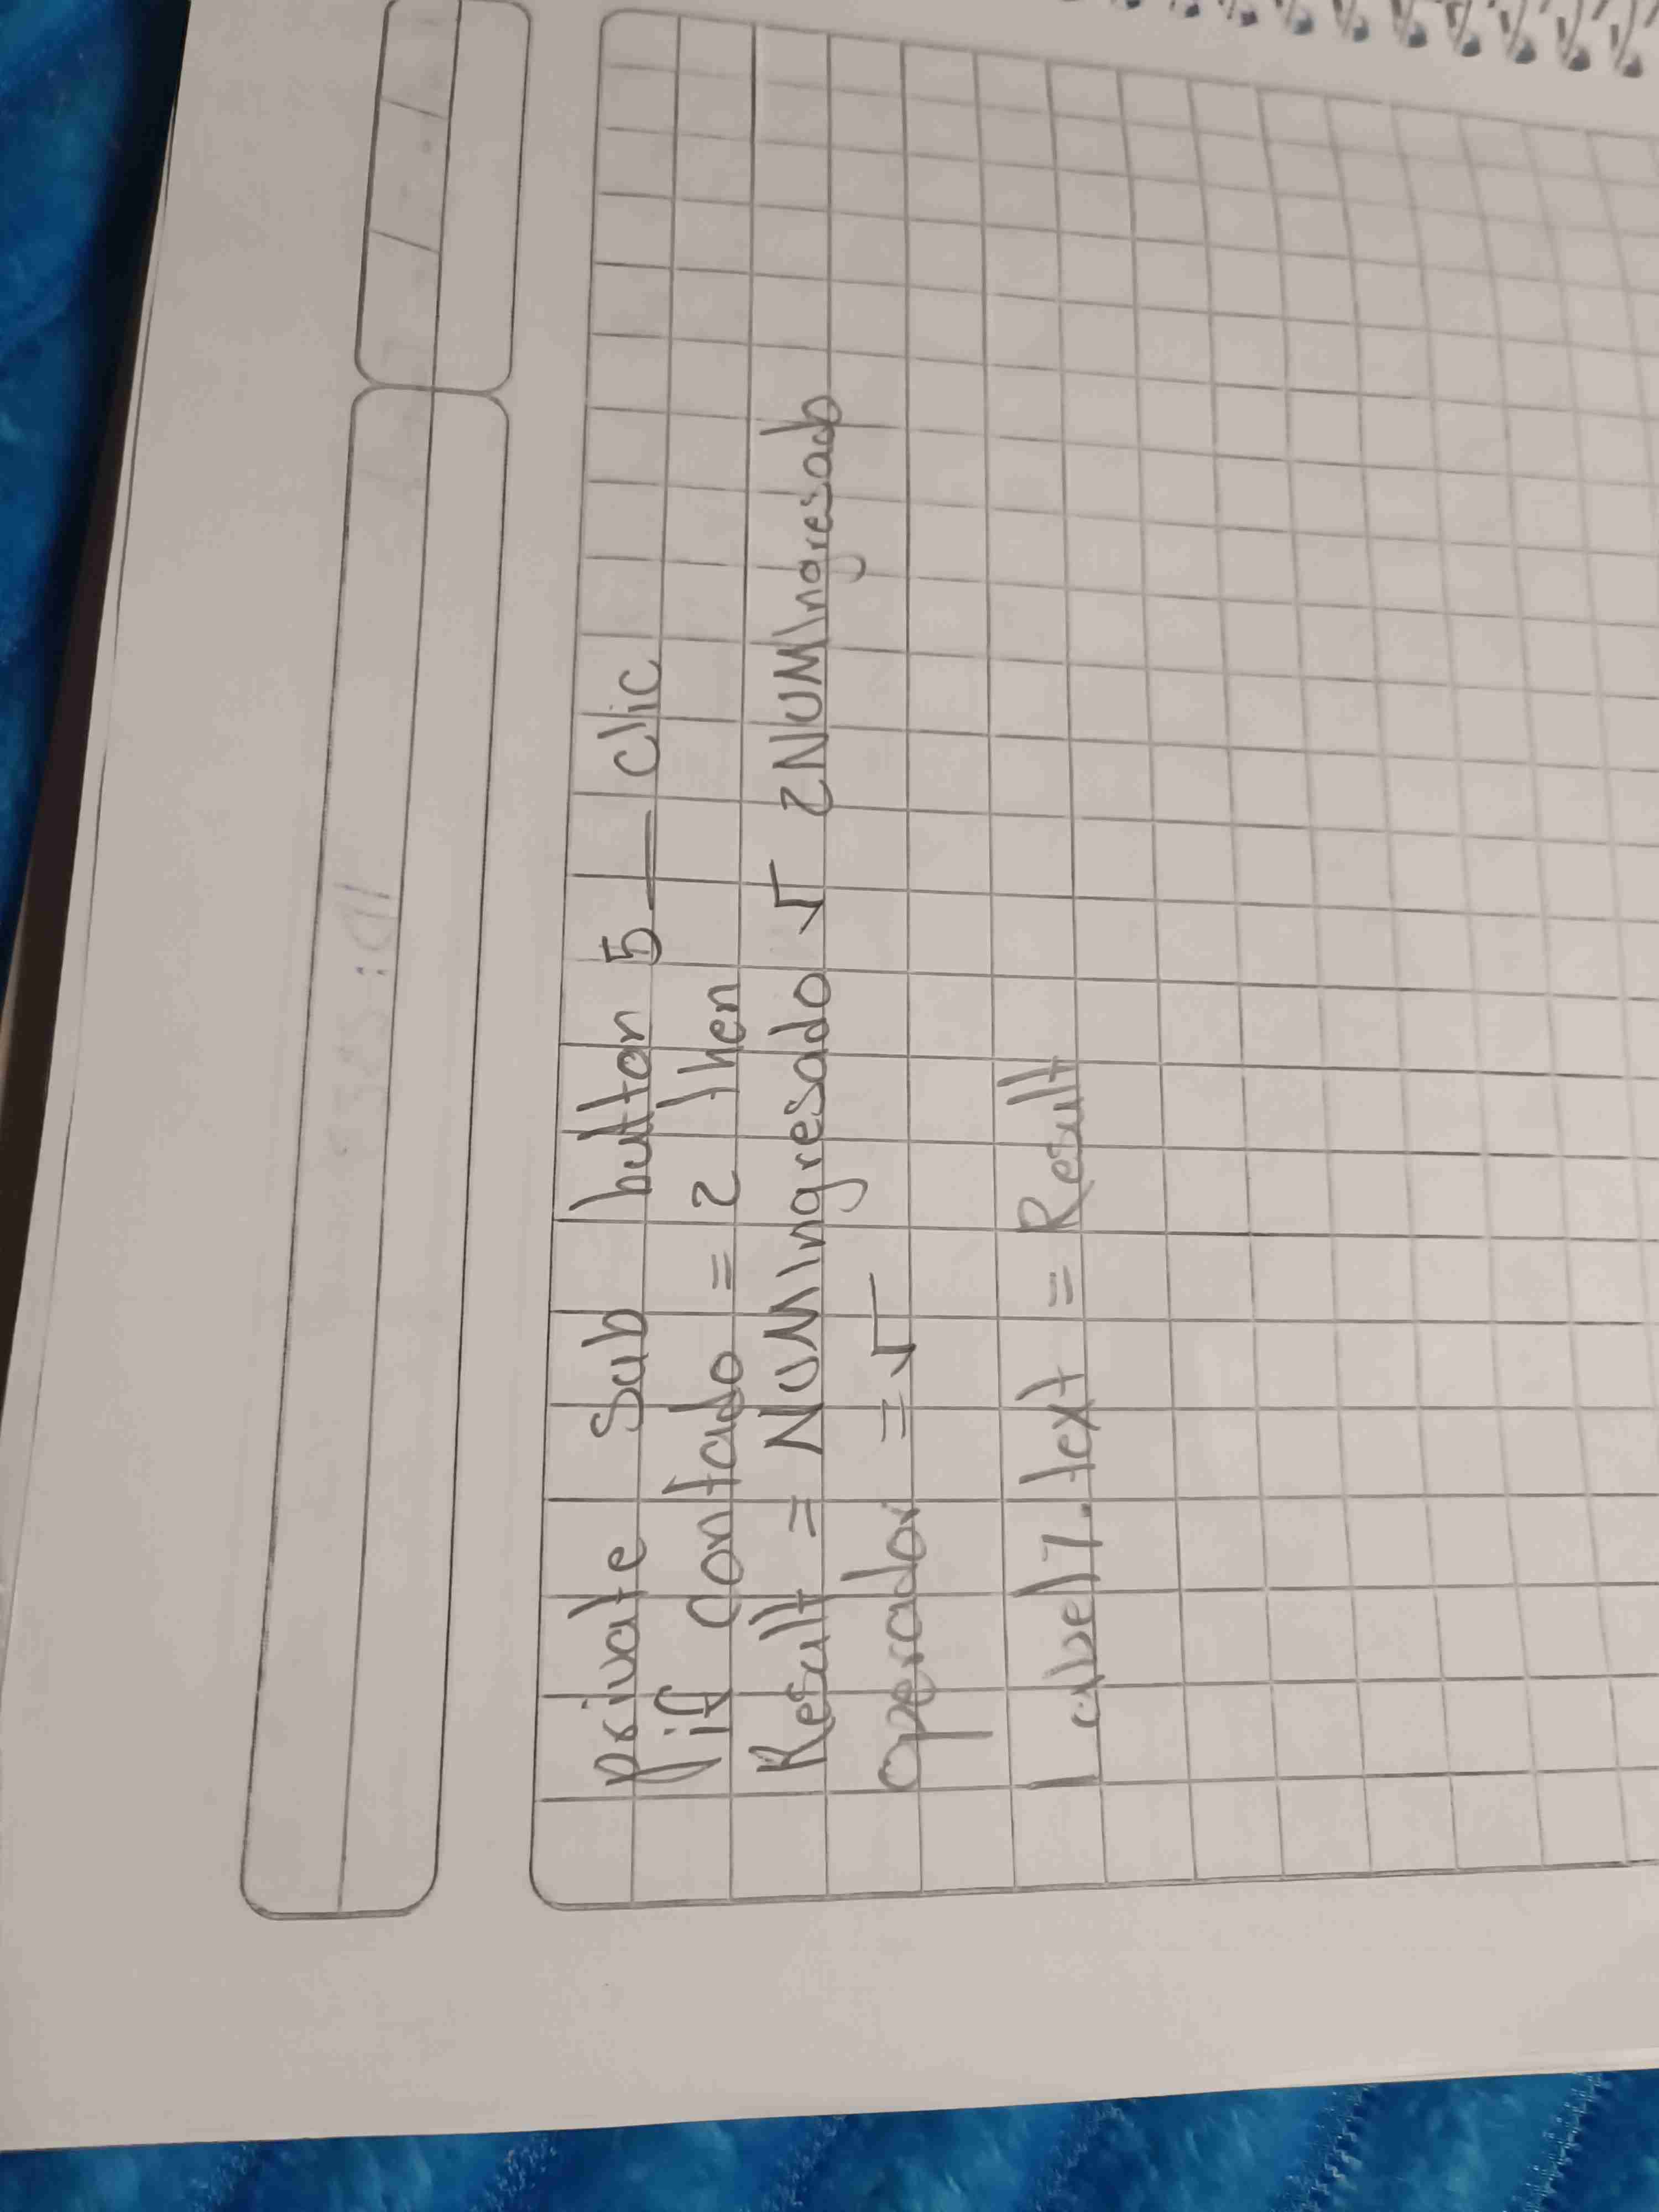 private Sub button 5 _ clic
if contado = 2 then
Result = NUMIngresado √ 2NUMIngresado
operador = √
Label7.text = Result